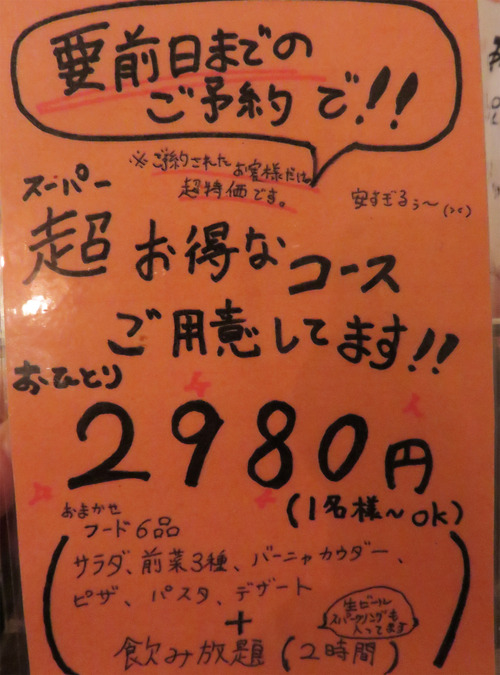 要前日までの
ご予約で!!
※ご予約されたお客様だけ
超特価です。
安すぎるぅ〜(><)
スーパー
超お得なコース
ご用意してます!!
おひとり
2980円
(1名様〜OK)
おまかせ
フード6品
サラダ、前菜3種、バーニャカウダー、
ピザ、パスタ、デザート
+
生ビール
スパークリングも
入ってます
飲み放題(2時間)